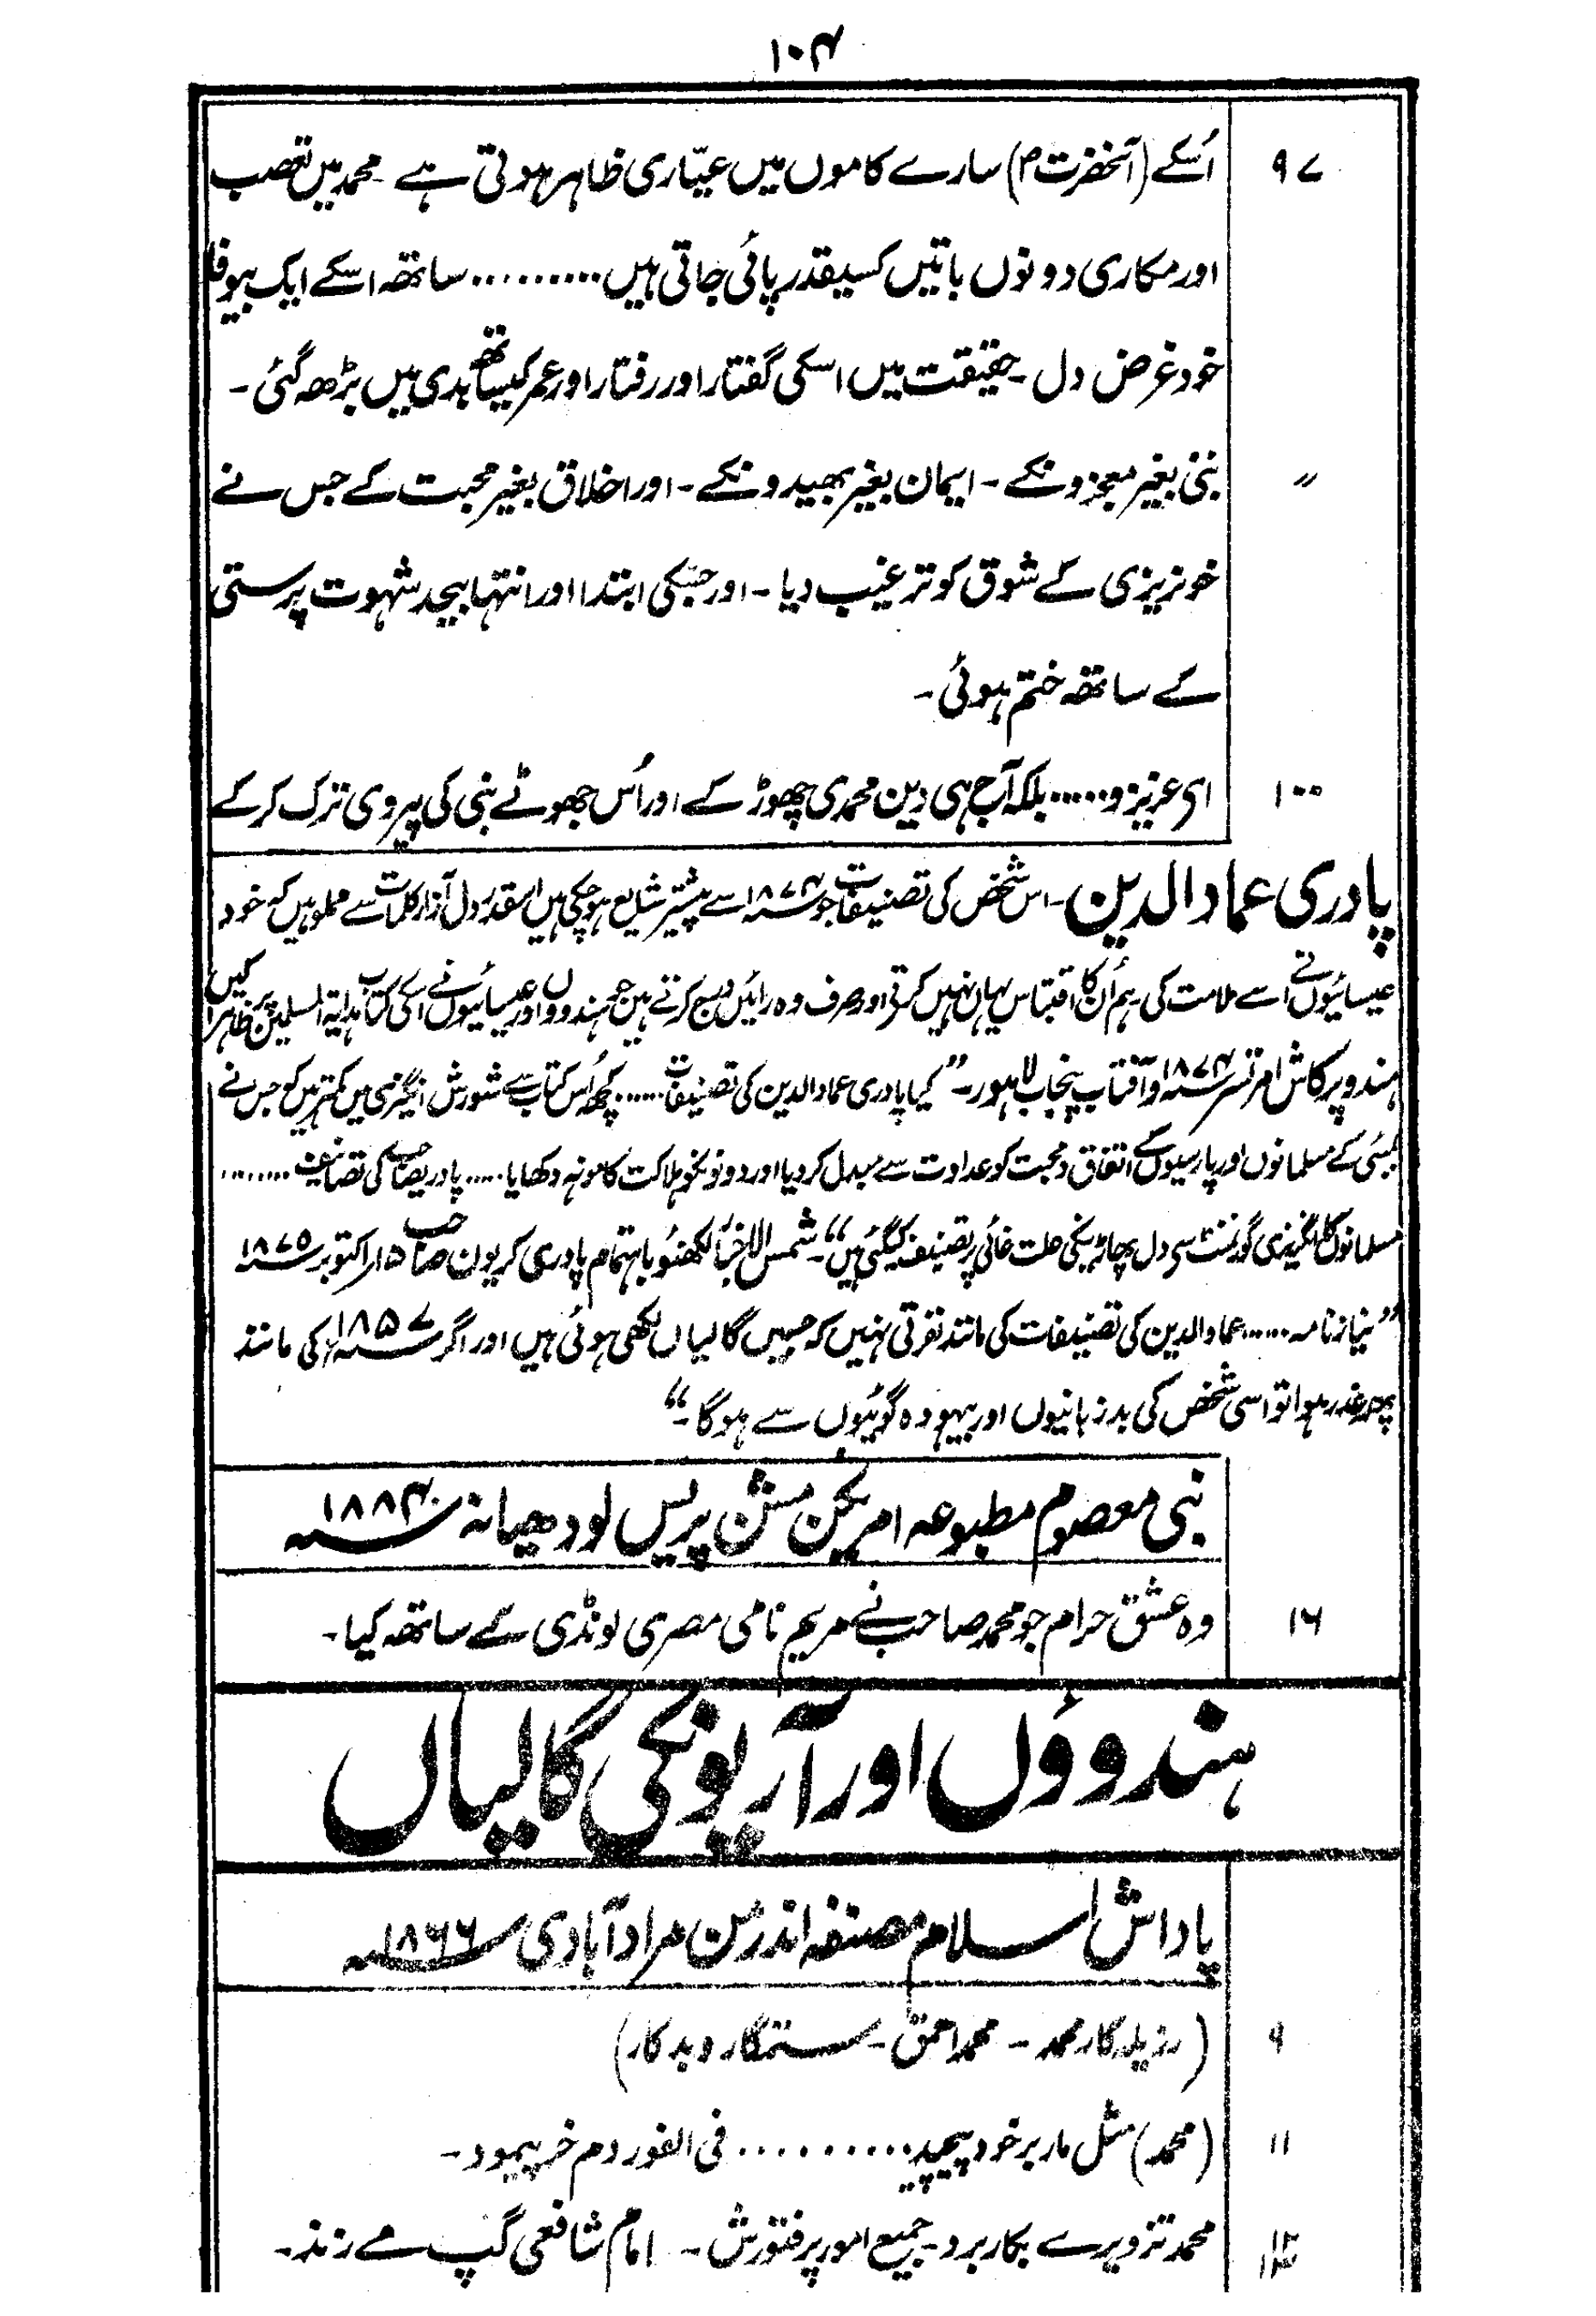 ۱۰۴
۹۷ اُسکے (آنحضرت ؐ) سارے کاموں میں عیّاری ظاہر ہوتی ہے ۔ محمد میں تعصب
اور مکاری دونوں باتیں کسیقدر پائی جاتی ہیں ......... ساتھ اسکے ایک بیوفا
خود غرض دل ۔ حقیقت میں اسکی گفتار اور رفتار اور عمر کیساتھ بدی میں بڑھ گئی ۔
〃 نبی بغیر معجزونکے ۔ ایمان بغیر بھیدونکے ۔ اور اخلاق بغیر محبت کے جس نے
خونریزی کے شوق کو ترغیب دیا ۔ اور جسکی ابتدا اور انتہا بیحد شہوت پرستی
کے ساتھ ختم ہوئی ۔
۱۰۰ ای عزیزو ..... بلکہ آج ہی دین محمدی چھوڑ کے اور اُس جھوٹے نبی کی پیروی ترک کر کے
پادری عماد الدین ۔ اس شخص کی تصنیفات جو ۱۸۷۴ سے پیشتر شایع ہو چکی ہیں اسقدر دل آزار کلمات سے مملو ہیں کہ خود
عیسائیوں نے اسے ملامت کی ہم اُن کا اقتباس یہاں نہیں کرتے اور صرف وہ رائیں درج کرتے ہیں جو ہندوؤں اور عیسائیوں نے اسکی کتاب ہدایۃ المسلمین پر ظاہر کیں
ہندو پرکاش امرتسر ۱۸۷۴ و آفتاب پنجاب لاہور ۔ ”کیا پادری عماد الدین کی تصنیفات ...... کچھ اُس کتاب سے شورش انگیزی میں کمتر ہیں کہ جس نے
بمبئی کے مسلمانوں اور پارسیوں کے اتفاق و محبت کو عداوت سے مبدل کر دیا اور دونونکو ہلاکت کا مونہہ دکھایا ..... پادریصاحب کی تصانیف ........
مسلمانوں کا انگریزی گورنمنٹ سے دل پھاڑنیکی علت غائی پر تصنیف کیگئی ہیں“ ۔ شمس الاخبار لکھنؤ باہتمام پادری کریون صاحب ۱۵ اکتوبر ۱۸۷۵
”نیاز نامہ ..... عماد الدین کی تصنیفات کی مانند نفرتی نہیں کہ جسمیں گالیاں لکھی ہوئی ہیں اور اگر ۱۸۵۷ کی مانند
پھر غدر ہوا تو اسی شخص کی بدزبانیوں اور بیہودہ گوئیوں سے ہوگا ۔“
نبی معصوم مطبوعہ امریکن مشن پریس لودھیانہ ۱۸۸۴
۱۶ وہ عشق حرام جو محمد صاحب نے مریم نامی مصری لونڈی کے ساتھ کیا ۔
ہندوؤں اور آریونکی گالیاں
پاداش اسلام مصنفہ اندرمن مرادآبادی ۱۸۶۶
۹ (رذیلہ کار محمد ۔ محمد احمق ۔ ستمگار و بدکار)
۱۱ (محمد) مثل مار بر خود پیچید ......... فی الفور دم خر پیمود ۔
محمد تزویرے بکار برد ۔ جمیع امور پر فتورش ۔ امام شافعی گپ مے زند ۔